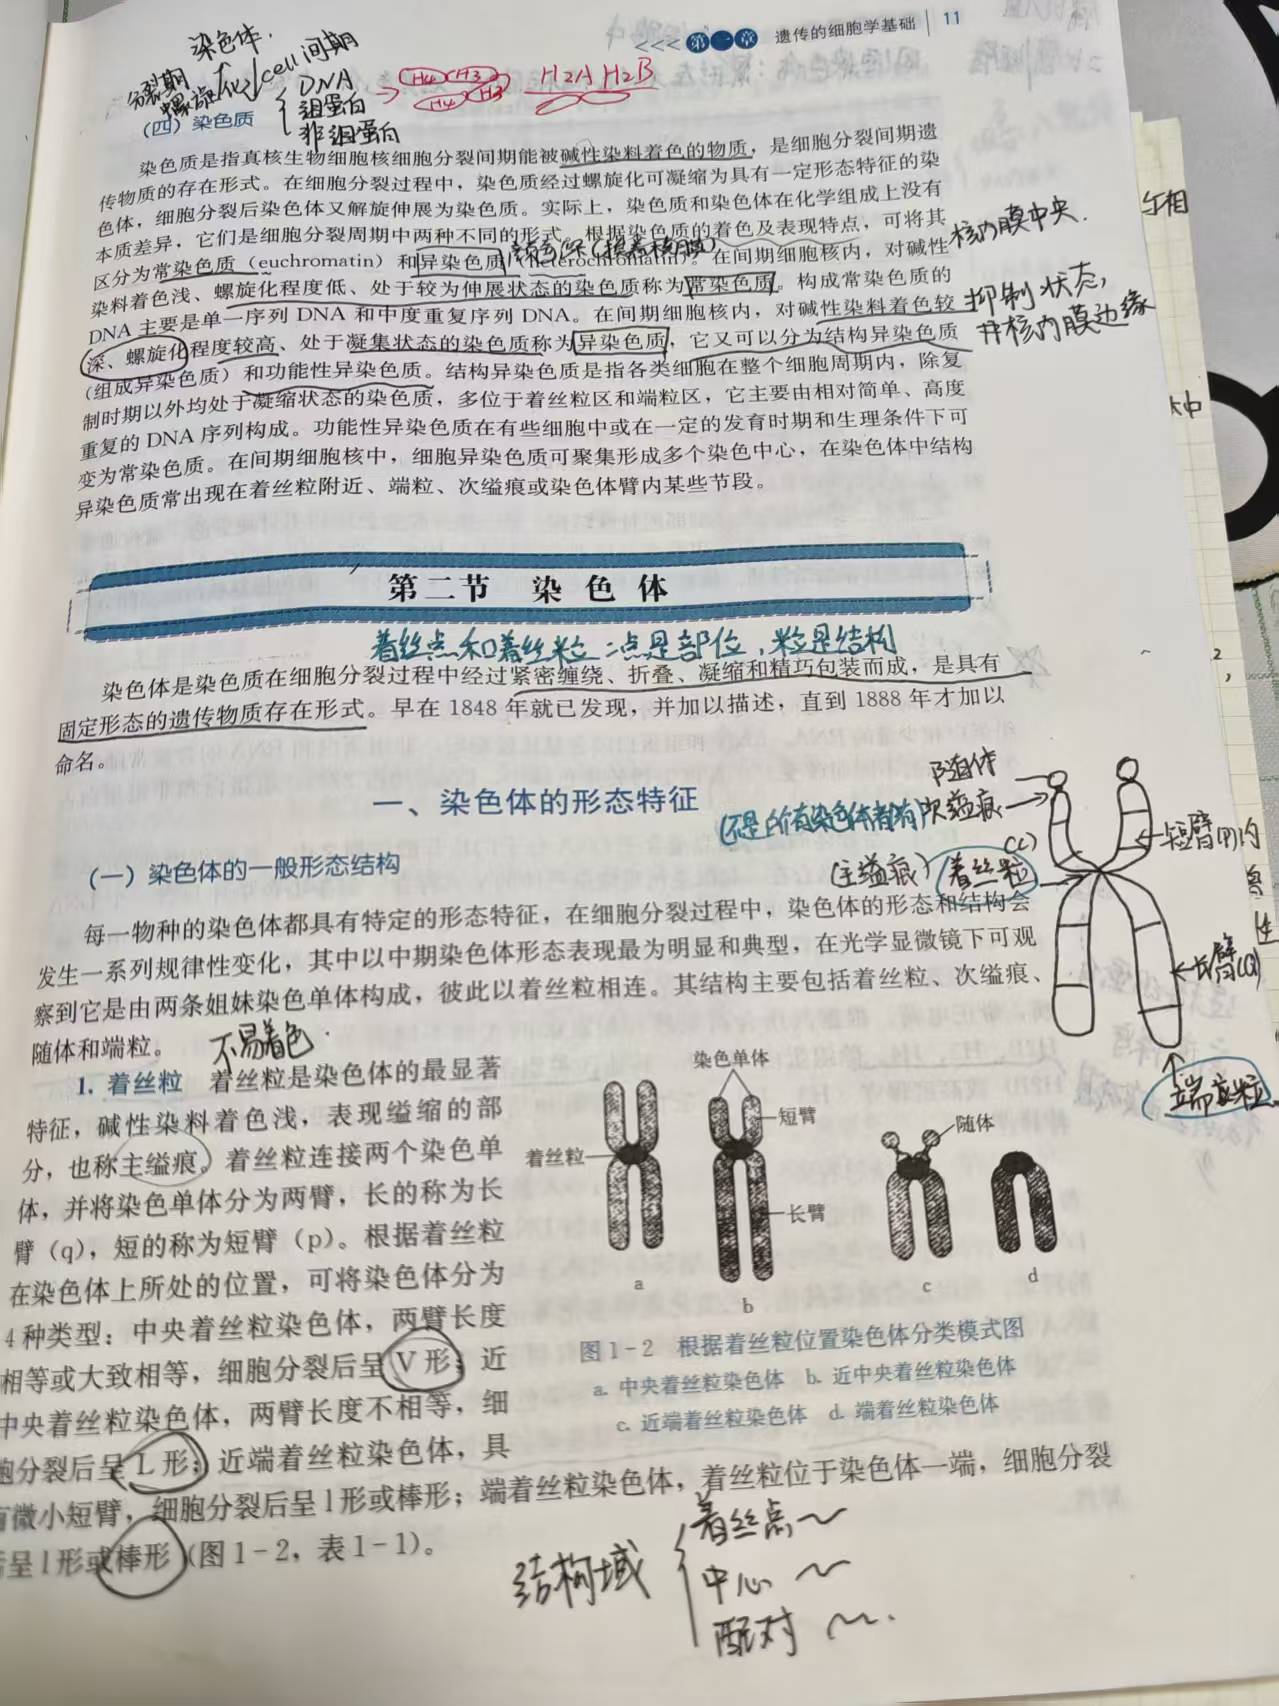 <<< 第一章 遗传的细胞学基础 | 11
染色体.
分裂期
螺旋化
cell间期
DNA
组蛋白
非组蛋白
H4 H3
H4 H3
H2A H2B
(四) 染色质
染色质是指真核生物细胞核细胞分裂间期能被碱性染料着色的物质，是细胞分裂间期遗
传物质的存在形式。在细胞分裂过程中，染色质经过螺旋化可凝缩为具有一定形态特征的染
色体，细胞分裂后染色体又解旋伸展为染色质。实际上，染色质和染色体在化学组成上没有
本质差异，它们是细胞分裂周期中两种不同的形式。根据染色质的着色及表现特点，可将其
区分为常染色质（euchromatin）和异染色质（heterochromatin）。在间期细胞核内，对碱性
染料着色浅、螺旋化程度低、处于较为伸展状态的染色质称为常染色质。构成常染色质的
DNA 主要是单一序列 DNA 和中度重复序列 DNA。在间期细胞核内，对碱性染料着色较
深、螺旋化程度较高、处于凝集状态的染色质称为异染色质，它又可以分为结构异染色质
（组成异染色质）和功能性异染色质。结构异染色质是指各类细胞在整个细胞周期内，除复
制时期以外均处于凝缩状态的染色质，多位于着丝粒区和端粒区，它主要由相对简单、高度
重复的 DNA 序列构成。功能性异染色质在有些细胞中或在一定的发育时期和生理条件下可
变为常染色质。在间期细胞核中，细胞异染色质可聚集形成多个染色中心，在染色体中结构
异染色质常出现在着丝粒附近、端粒、次缢痕或染色体臂内某些节段。
核内膜中央.
抑制状态,
核内膜边缘
第二节 染色体
着丝点和着丝粒：点是部位，粒是结构
染色体是染色质在细胞分裂过程中经过紧密缠绕、折叠、凝缩和精巧包装而成，是具有
固定形态的遗传物质存在形式。早在 1848 年就已发现，并加以描述，直到 1888 年才加以
命名。
一、染色体的形态特征
随体
(不是所有染色体都有)次缢痕
(主缢痕) 着丝粒
短臂(P)
长臂(Q)
端粒
(一) 染色体的一般形态结构
每一物种的染色体都具有特定的形态特征，在细胞分裂过程中，染色体的形态和结构会
发生一系列规律性变化，其中以中期染色体形态表现最为明显和典型，在光学显微镜下可观
察到它是由两条姐妹染色单体构成，彼此以着丝粒相连。其结构主要包括着丝粒、次缢痕、
随体和端粒。
不易着色
1. 着丝粒 着丝粒是染色体的最显著
特征，碱性染料着色浅，表现缢缩的部
分，也称主缢痕。着丝粒连接两个染色单
体，并将染色单体分为两臂，长的称为长
臂（q），短的称为短臂（p）。根据着丝粒
在染色体上所处的位置，可将染色体分为
4 种类型：中央着丝粒染色体，两臂长度
相等或大致相等，细胞分裂后呈 V 形；近
中央着丝粒染色体，两臂长度不相等，细
胞分裂后呈 L 形；近端着丝粒染色体，具
有微小短臂，细胞分裂后呈 l 形或棒形；端着丝粒染色体，着丝粒位于染色体一端，细胞分裂
后呈 l 形或棒形（图 1-2，表 1-1）。
染色单体
短臂
着丝粒
随体
长臂
a
b
c
d
图 1-2 根据着丝粒位置染色体分类模式图
a. 中央着丝粒染色体 b. 近中央着丝粒染色体
c. 近端着丝粒染色体 d. 端着丝粒染色体
结构域
着丝点~
中心~
配对~